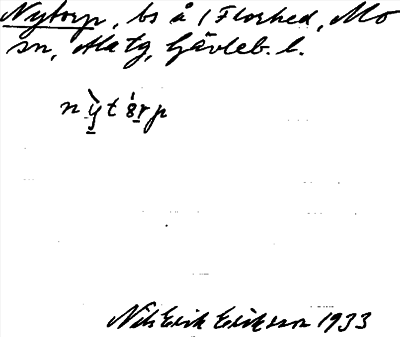 Nytorp, bs å / Florhed, Mo
sn, Ala tg, Gävleb. l.
nỳt órp
Nils Erik Eriksson 1933